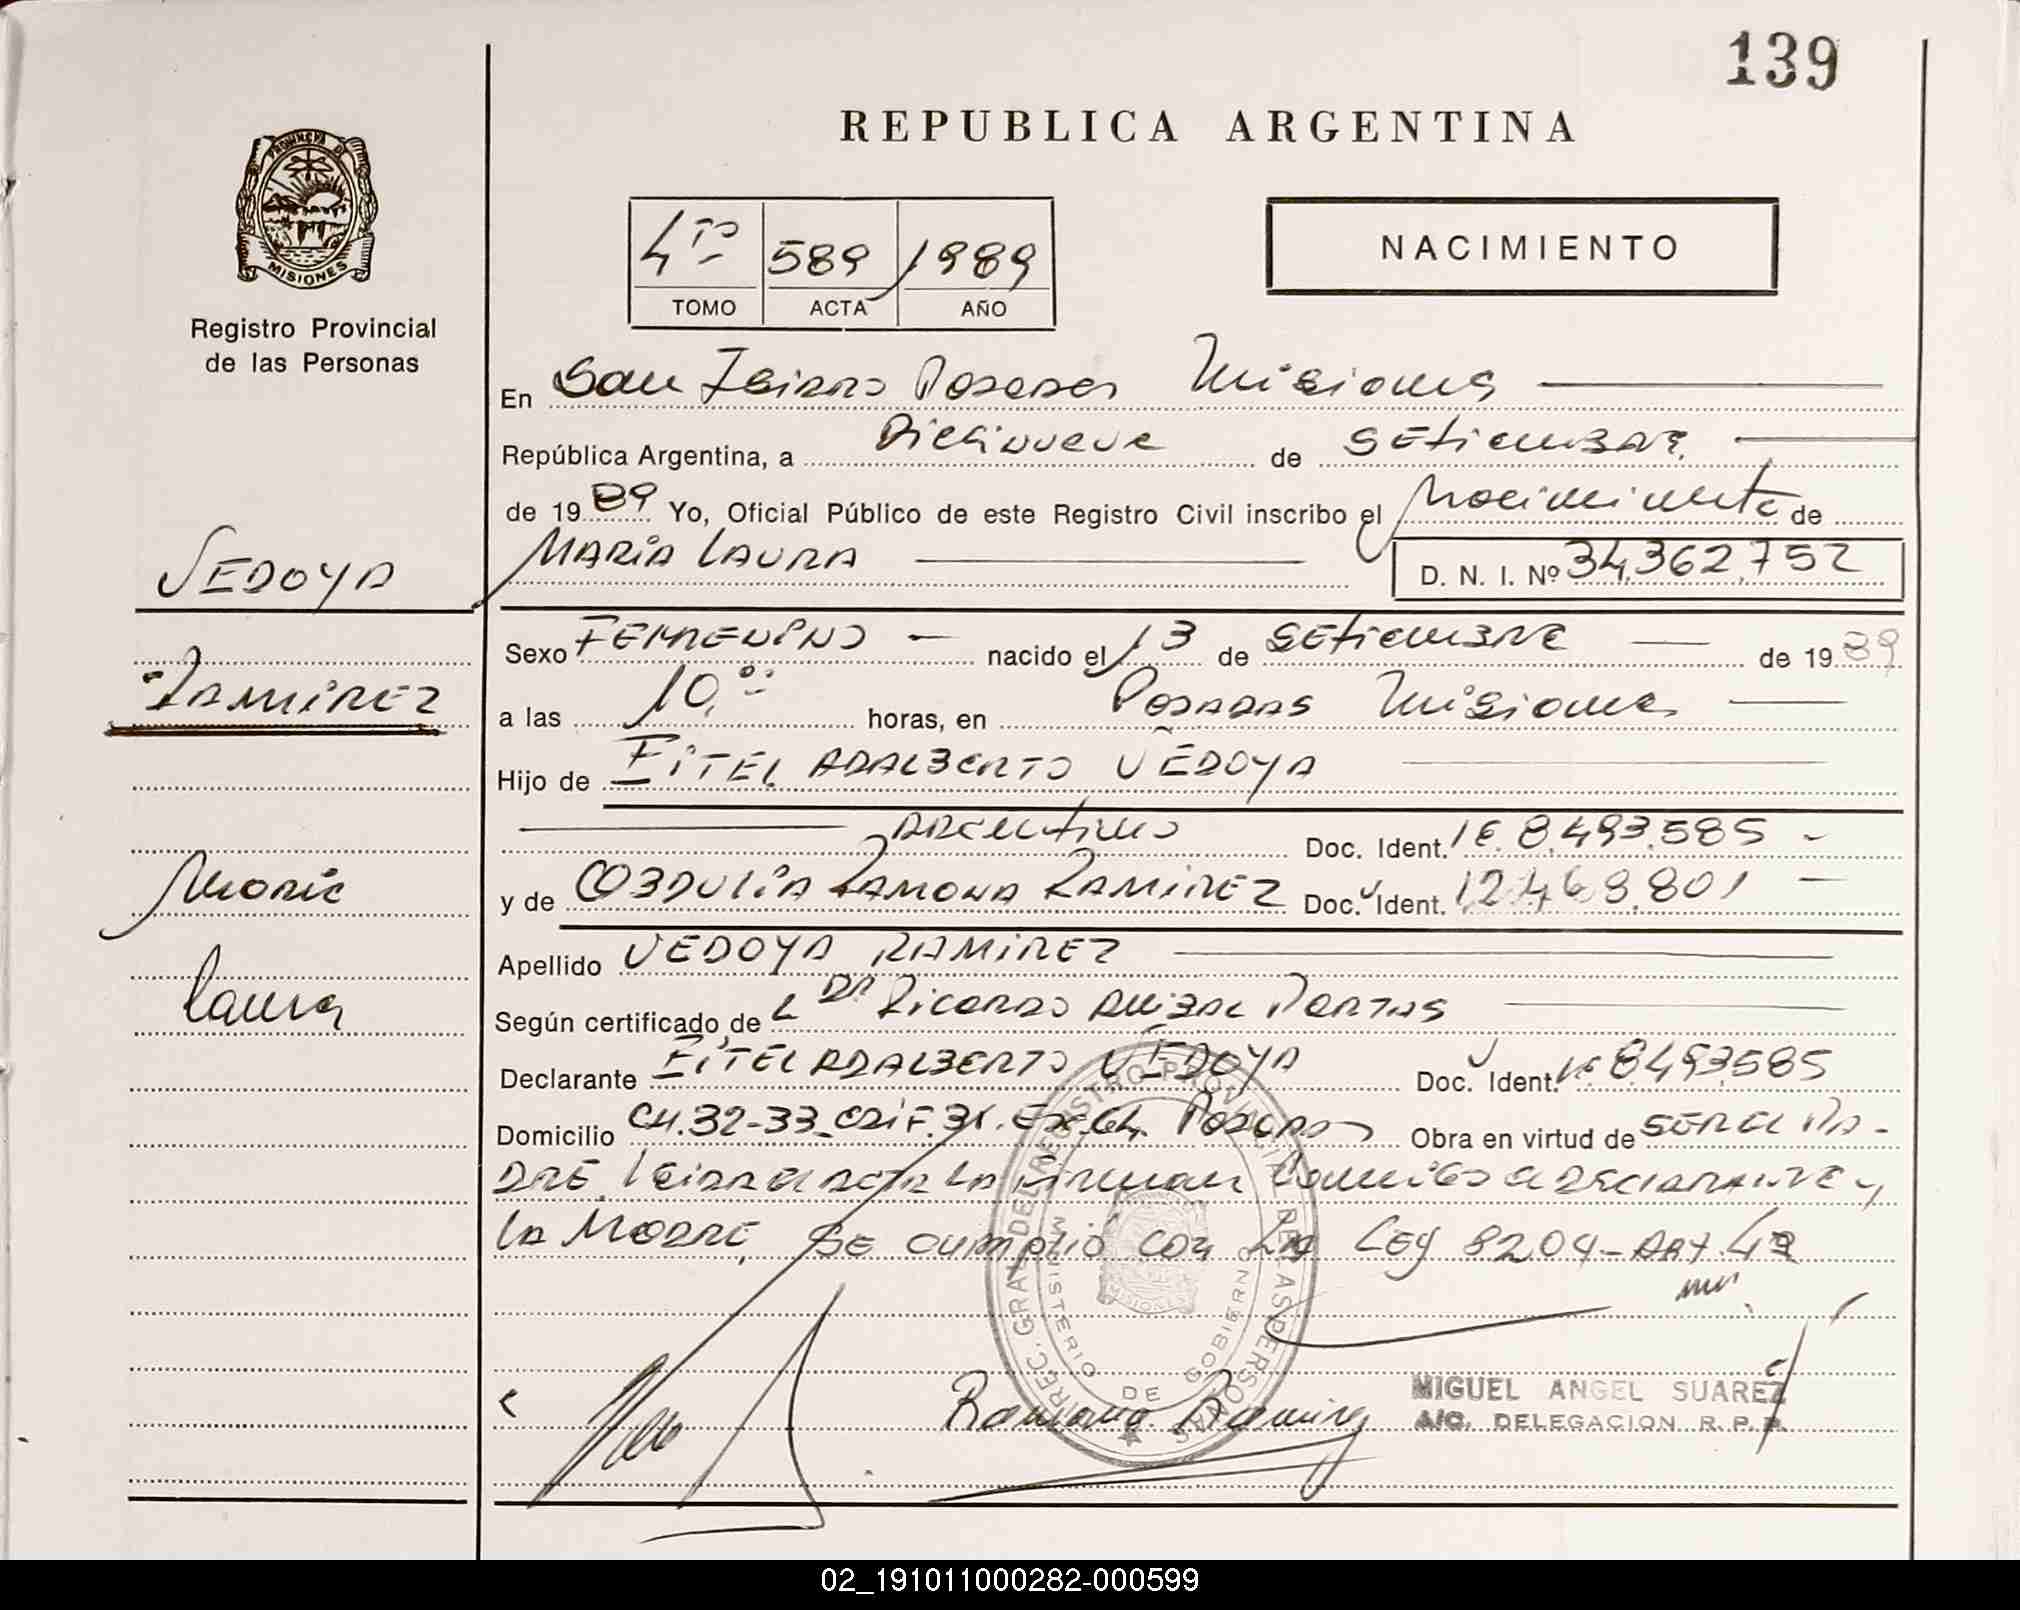 139
REPUBLICA ARGENTINA
PROVINCIA DE
MISIONES
4to 589 1989
TOMO ACTA AÑO
NACIMIENTO
Registro Provincial
de las Personas
En San Isidro Posadas Misiones
República Argentina, a Diecinueve de Setiembre
de 1989 Yo, Oficial Público de este Registro Civil inscribo el Nacimiento de
VEDOYA
MARIA LAURA D. N. I. Nº 34.362.752
Sexo FEMRENINO nacido el 13 de SEtiembre de 1989
RAMIREZ
a las 10,00 horas, en Posadas Misiones
Hijo de EITEL ADALBERTO VEDOYA
Argentino Doc. Ident. 8.493.585
Maria
y de OBDULIA RAMONA RAMIREZ Doc. Ident. 12.468.801
Apellido VEDOYA RAMIREZ
Laura
Según certificado de Dr Ricardo Anibal
Declarante EITEL ADALBERTO VEDOYA Doc. Ident. 8493585
Domicilio CH.32-33 EDIF. Posadas Obra en virtud de SER EL PA-
DRE. Leida el acta la firman Conmigo el DECLARANTE y
LA MADRE, SE cumplió con La LEy 8204-ART.
DIREC. GRAL. DEL REGISTRO PROVINCIAL DE LAS PERSONAS
MINISTERIO DE GOBIERNO
MISIONES
Ramona Ramirez
MIGUEL ANGEL SUAREZ
A/C. DELEGACION R. P. P.
02_191011000282-000599